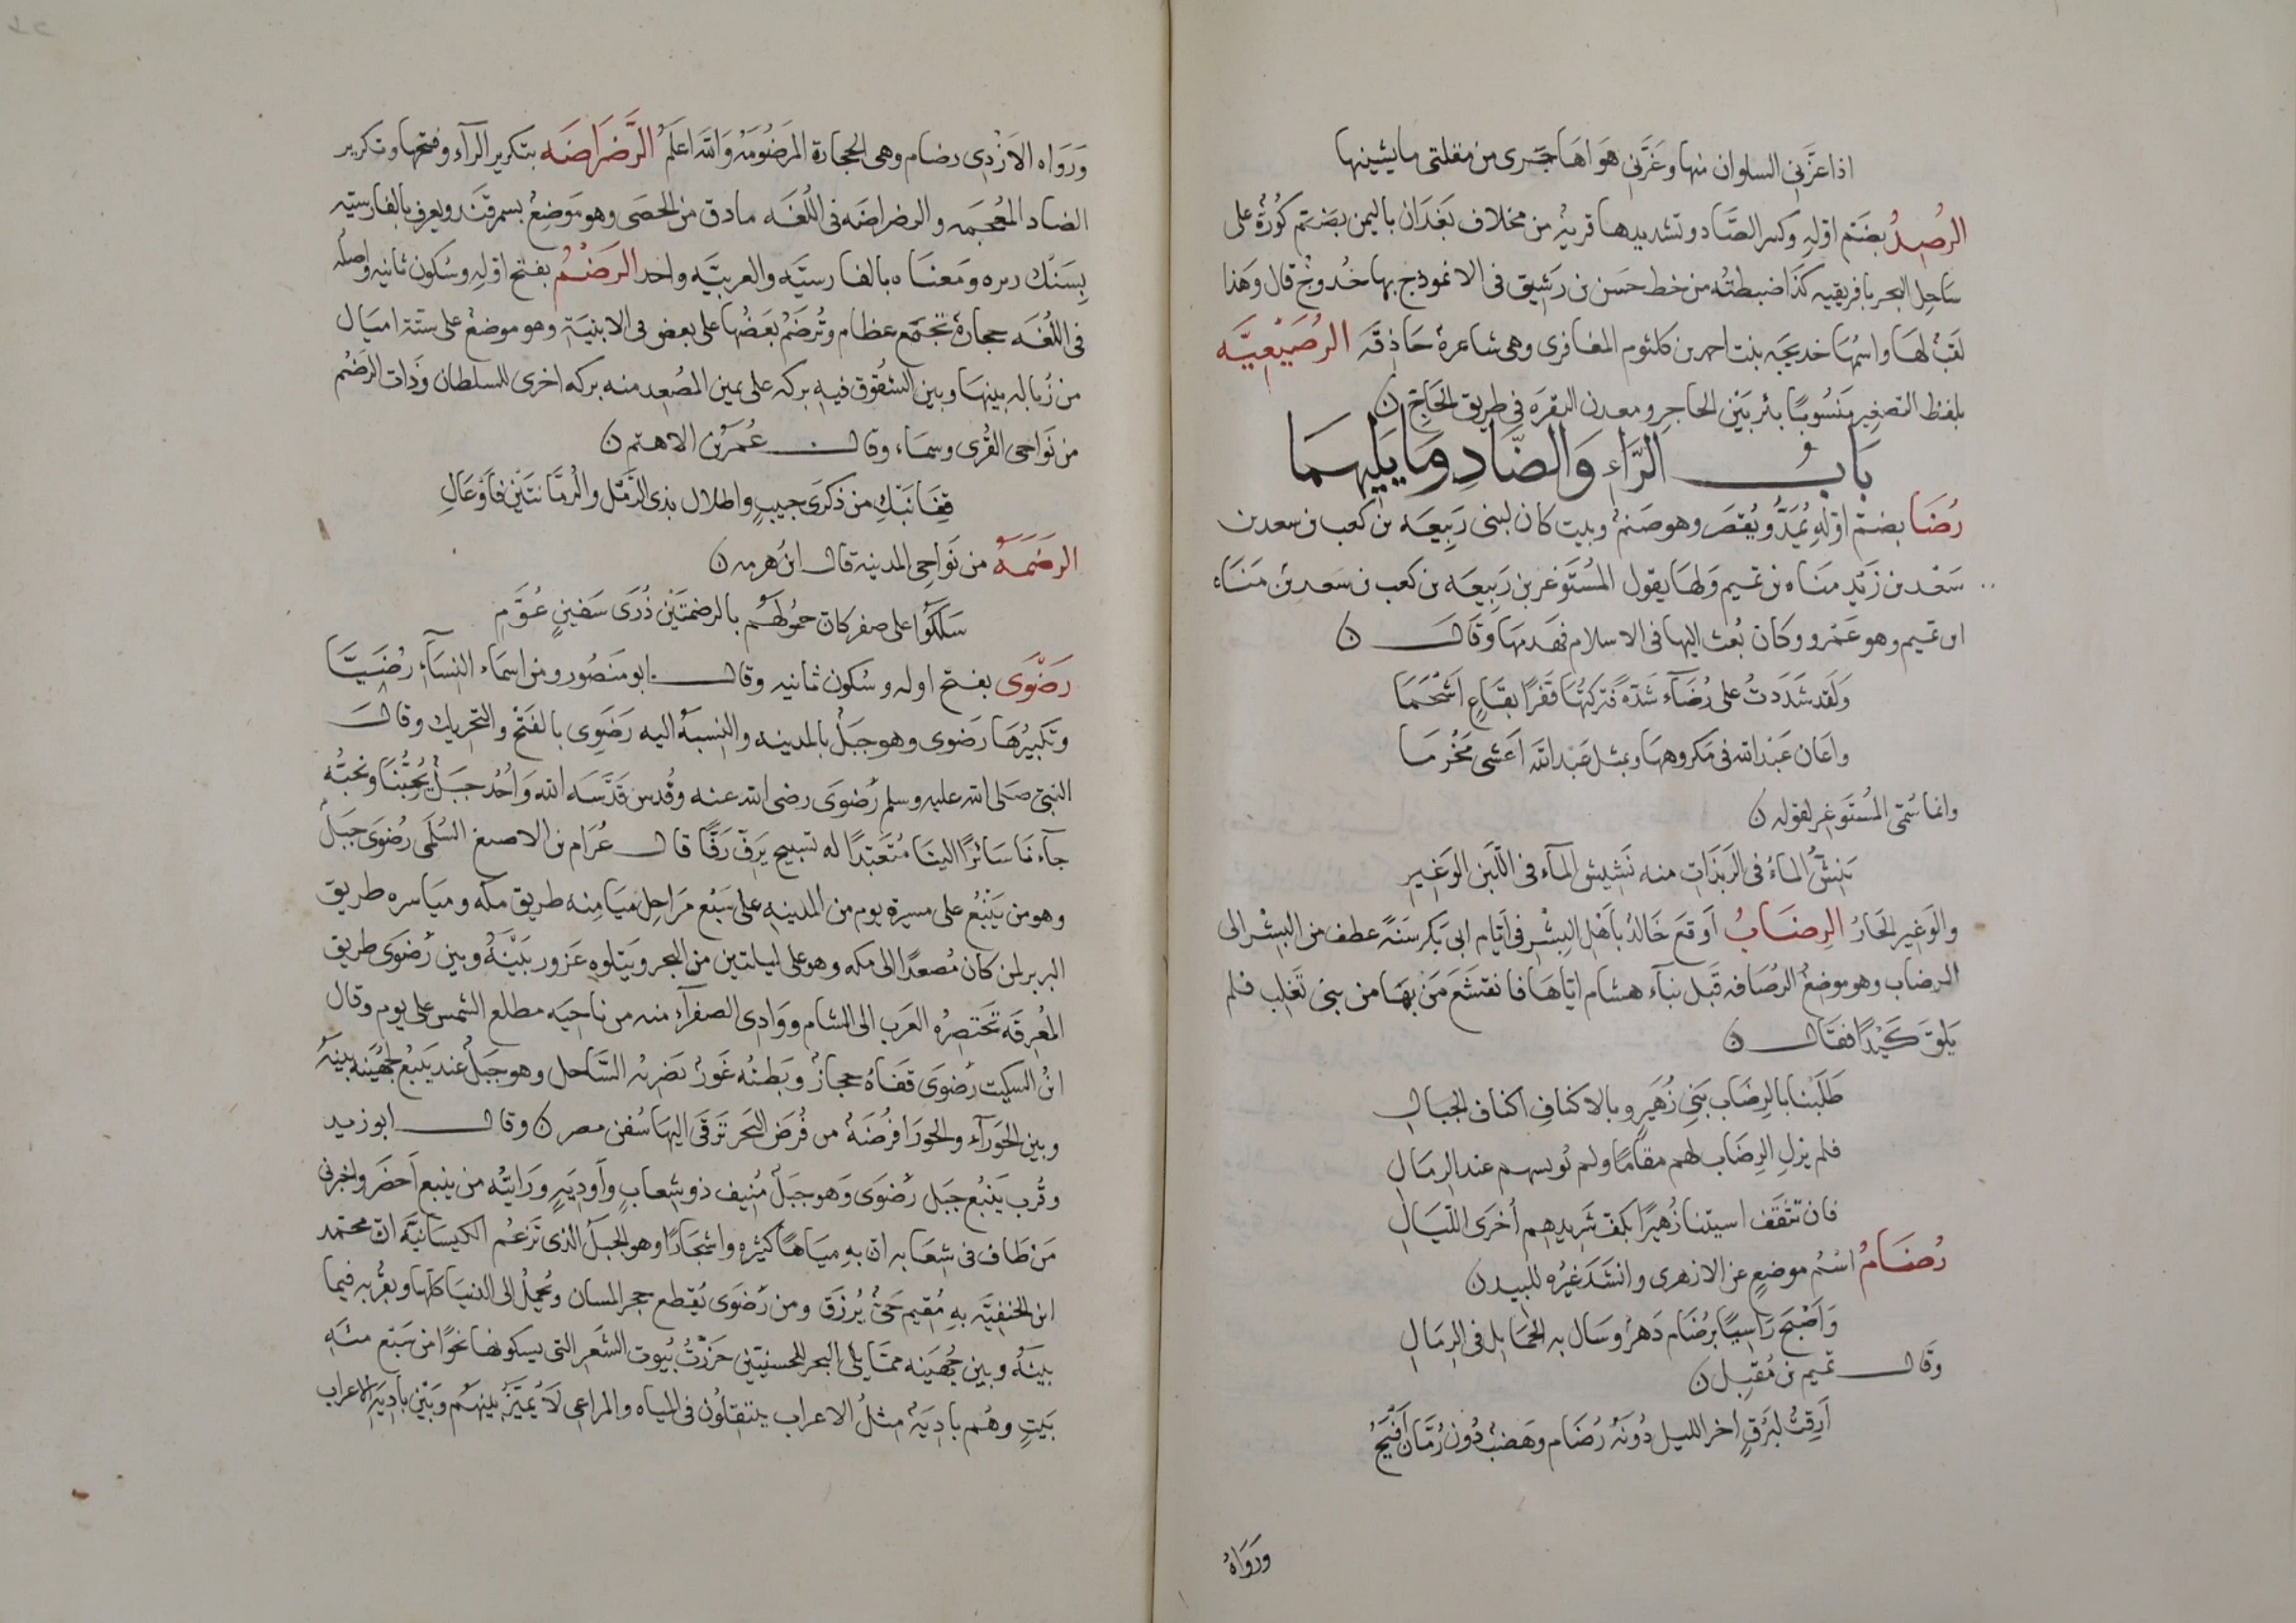 اذا عزّنى السلوان منها وغرّنى هواها جرى من مقلتى ما يشينها
الرصدُ بضَمّ اوّله وكسر الصّاد وتشديدها قرية من مخلاف بَعْدَان باليمن بضمّ كُورَة على
سَاحِل البحر بافريقيه كذا ضبطتُه من خط حسَن بن رَشِيق فى الانموذج بها خُدوج قال وَهَذا
لقبُ لهَا واسمُهَا خديجَه بنت احمد بن كلثوم المغافرى وهى شاعرة حَاذِقَه الرُصَيْعِيَّه
بلفظ التصغير مَنسُوبًا بئر بَيْن الحاجِر ومعدن النقرَه فى طريق الحَاجّ ن
بَابُ الرّاءِ وَالضّادِ وَمَا يَلِيهِمَا
رُضَا بضمّ اوّله يُمَدُّ ويُقصَر وهو صَنمٌ وبيت كان لبنى رَبِيعَه بن كعب بن سعد بن
سَعْد بن زَيْد مَنَاه بن تميم وَلهَا يقول المُسْتَوغر بن رَبِيعَه بن كعب بن سَعد بن مَنَاه
ابن تميم وهو عَمْرو وكان بُعث اليها فى الاسلام فهَدمهَا وَقَالَ ن
وَلَقد شَدَدتُ على رُضَآء شَدّةً فتركتُهَا قَفرًا بقَاعٍ اَسْحَمَا
واَعَان عَبْد الله فى مَكروههَا وبمثل عَبْد الله اَغشى مَحْرَمَا
وانما سُمّى المُسْتَوغِر لقوله ن
يَنِشُّ المآءُ فى الرَبَذَاتِ منه نَشِيشَ المآء فى اللَّبَن الوَغير
والوَغير الحَارُ الرِضَابُ اَوقَعَ خَالدٌ بأَهْلِ البِشْر فى اَيّام ابى بَكر سَنَةً عطف من البِشْر الى
الرضاب وهو موضعُ الرُصَافه قَبل بنآء هشام ايّاهَا فانقشَعَ مَنْ بهَا من بنى تَغلِب فلم
يَلقَ كَيْدًا فقَال ن
طَلَبْنا بالرِضَاب بَنى زُهَيرٍ وبالاكنافِ اكنافِ الجبالِ
فلم يزلِ الرِضَاب لهم مقامًا ولم يُؤنسهم عند الرمَالِ
فان تثقَف اسيتنا زُهَيرًا بكفّ شَريدهم اُخرَى اللّيَالِ
رُضَامُ اسْمُ موضعٍ عن الازهرى وانشَدَ غيْره للبيد ن
وَاَصْبَحَ رَاسِيًا برُضَام دَهْرًا وسَال به الخمَايل فى الرِمَالِ
وقال تميم بن مُقبِل ن
اَرِقتُ لبَرْقٍ آخر الليل دُونَهُ رُضَام وهَضبٌ دُون رُمّان اَفْيَحُ
ورَوَاهُ
وَرَوَاه الاَزْدِى رضام وهى الحجارة المَرضُومَة وَالله اعلَمُ الرَّضرَاضَه بتكرير الرآء وفتحها وتكرير
الضاد المُعجَمه والرضراضَه فى اللُغَه مادق من الحصَى وهو مَوضِعُ بسمرقَند ويعرف بالفارسيّه
بِسَنْك ريره ومَعنَاه بالفارسيَّه والعربيَّه واحد الرَضْمُ بفتح اوّلِه وسُكون ثانيه واصلُه
فى اللُغَه حجارة تجتمع عظام وتُرضَمُ بَعضُها على بعض فى الابنيَة وهو موضعٌ على ستّة اميَال
من زُبَاله بينهَا وبين الشُقُوق فيه بركَه على يمين المُصْعِد منه بركه اخرى للسلطان وَذات الرَضْم
من نَوَاحى القُرى وتيمَاء وقال عُمَرُ بن الاهتم ن
قِفَا نَبْكِ من ذكرَى حَبيبٍ واطلالِ بذى الرَّمْل والرُمّانتَيْن فاَوْعَالِ
الرَضَمَةُ من نَوَاحِى المدينه قال ابنُ هَرمه ن
سَلَكُوا على صفر كان حمُولَهُم بالرضمتَيْن ذُرَى سَفينٍ عُوَّمِ
رَضْوَى بفتح اوله وسُكون ثانيه وقال ابو مَنصُور ومن اسمَاء النسَآءِ رُضَيَّا
وتَكبِيرُهَا رَضوى وهو جَبَلٌ بالمدينه والنِسبَةُ اليه رَضَوِى بالفَتْح والتحريك وقال
النبىّ صَلى الله عليه وسلم رَضْوَى رضى الله عنه وقُدس قَدَّسَه الله وَاُحُد جَبَلٌ يُحِبُّنَا ونحبُّه
جآءَنا سَائرًا الينَا مُتَعَبّدًا له تسبيح يَرفّ رَفًّا قال عُرّام بن الاصبغ السُلَمى رَضوَى جَبَلُ
وهو من يَنْبُع على مسيرة يوم من المدينه على سَبْع مَرَاحِل ميَامِنه طريق مكه ومياسره طريق
البربر لمن كان مُصعدًا الى مكه وهو على ليلتين من البحر ويتلوهِ عَزور بَيْنَهُ وبين رَضْوَى طريق
المُعْرِقَه تَختصِرُه العَرب الى الشام ووَادِى الصفرآء منه من ناحيَه مطلع الشمس على يوم وقال
ابنُ السكيت رَضوَى قفاهُ حجاز وبَطنُه غَورٌ يَضربُه السّاحل وهو جَبَلُ عند يَنبُع لجُهَينَه بينَهُ
وبين الحَوْرآء والحَورَا فرُضَةُ من فُرَض البَحر تَرقَى اليهَا سُفن مصر ن وقال ابو زيد
وقُرب يَنْبُع جَبَل رَضْوَى وَهو جَبَلُ مُنِيف ذو شِعابٍ واَودِيَهٍ ورَايتُه من ينبع اَخضَر واخبرنى
مَن طَاف فى شِعَابه ان بهِ ميَاهًا كثيره واشجَارًا وهو الجَبَلُ الذى تَزعُم الكيسَانيَّه انّ محمّد
ابن الحنفيَّه بهِ مُقيم حَىٌّ يُرزَق ومن رَضْوَى يُقطع حجر المسان ويُحمَلُ الى الدنيَا كلّها وبقُربه فيما
بينَهُ وبين جُهَينه ممّا يَلى البحر للحسنيّين حَزَرْتُ بُيوت الشَعر التى يسكونها نحوًا من سَبْع مئَه
بَيتٍ وهُم بادِيَه مثل الاعراب ينتقلُون فى المياه والمراعى لَا يُمَيَّز بينهُم وبَيْن بادِيَه الاعراب